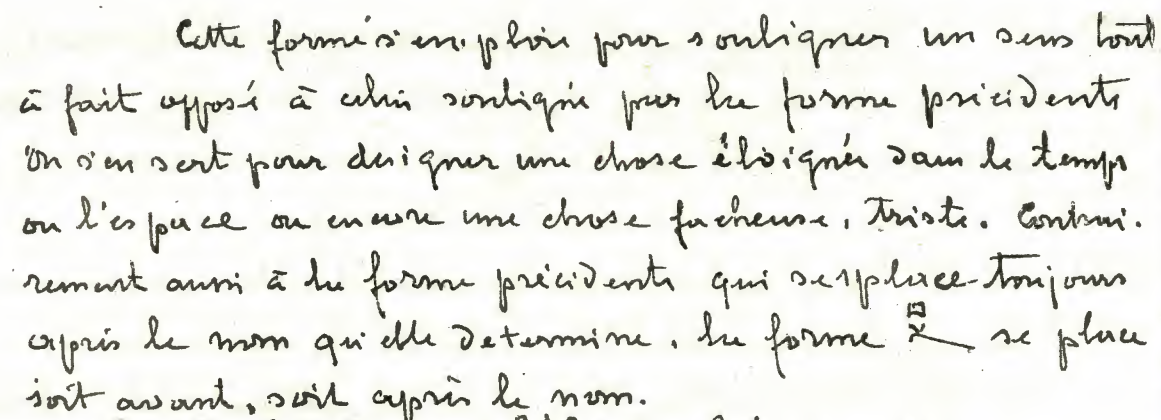 Cette forme s'emploie pour souligner un sens tout
à fait opposé à celui souligné par la forme précédente
On s'en sert pour designer une chose éloignée dans le temps
ou l'espace ou encore une chose facheuse, triste. Contrai-
rement aussi à la forme précédente qui se place toujours
après le nom qu'elle determine, la forme se place
soit avant, soit après le nom.